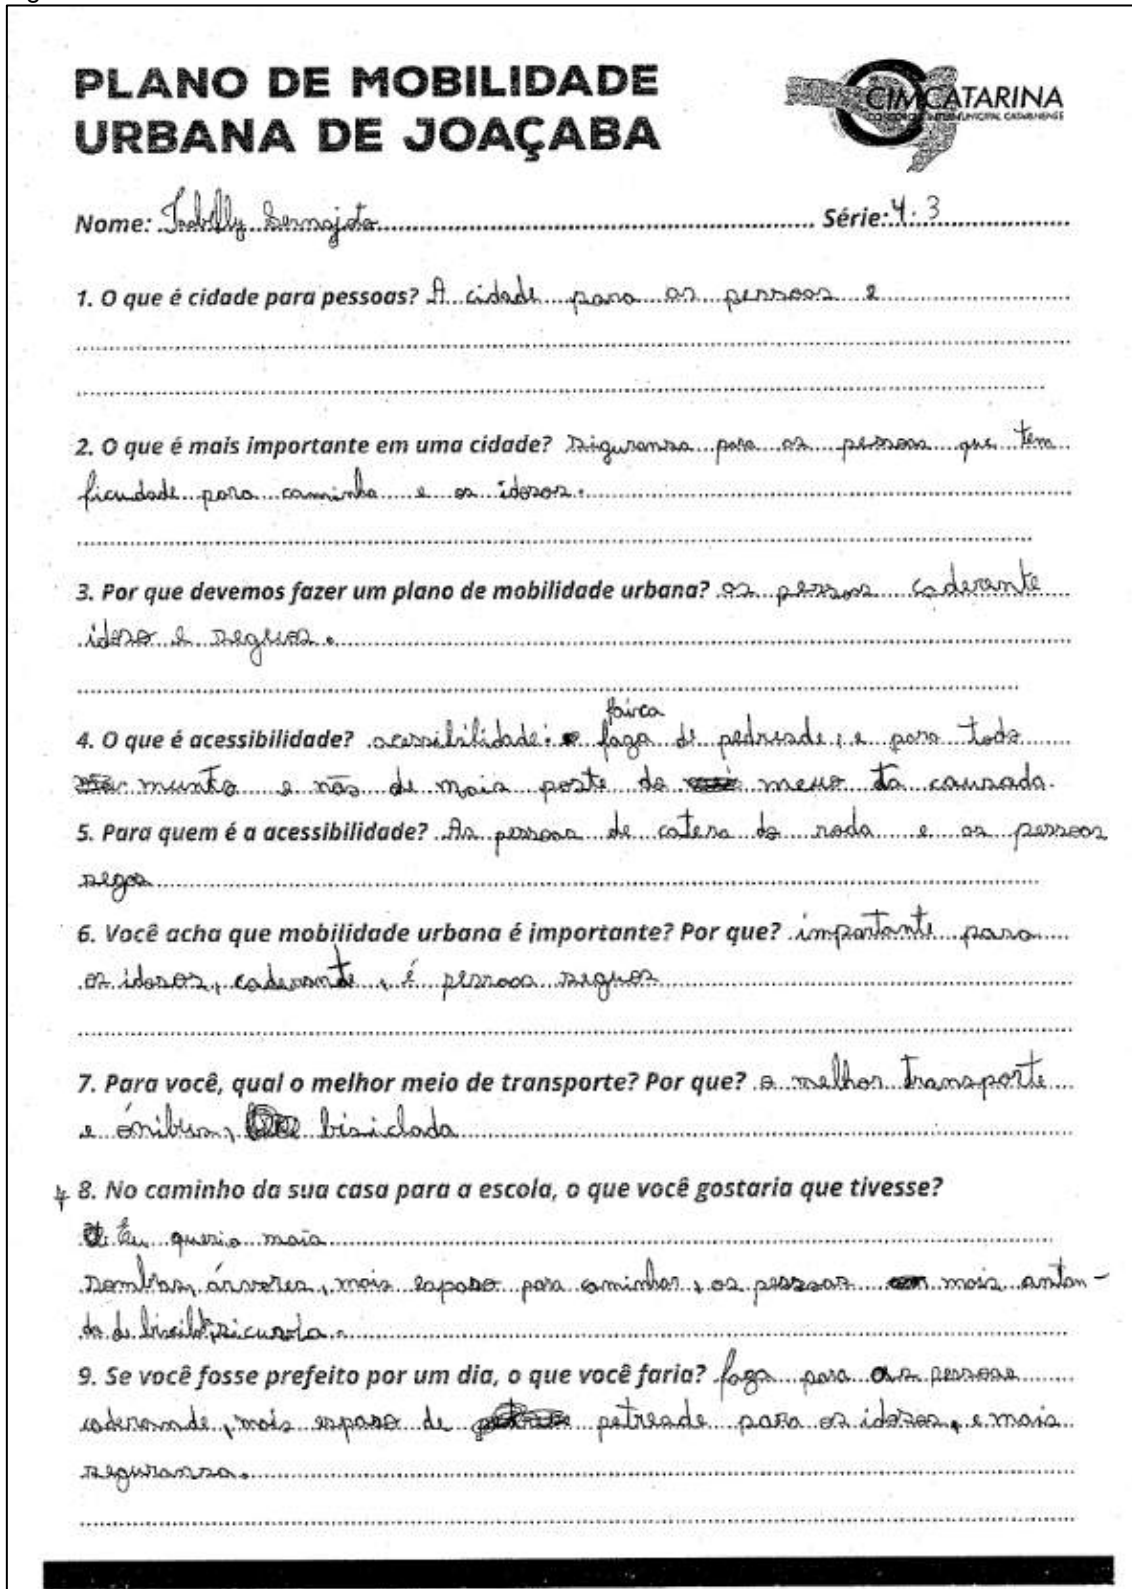 PLANO DE MOBILIDADE
URBANA DE JOAÇABA
CIMCATARINA
CONSÓRCIO INTERMUNICIPAL CATARINENSE
Nome: Série: 4.3
1. O que é cidade para pessoas? A cidade para as pessoas e
2. O que é mais importante em uma cidade? siguransa para as pessoas que tem
ficudade para caminha e os idosos.
3. Por que devemos fazer um plano de mobilidade urbana? as pessoas caderante
idoso e seguos.
faixa
4. O que é acessibilidade? acessibilidade: faza de pedresde, e para todo
munto e não de mais poste do meuo da causada.
5. Para quem é a acessibilidade? As pessoas de catera da roda e as pessoas
segos
6. Você acha que mobilidade urbana é importante? Por que? importante para
os idosos, caderante, é pessoas seguos
7. Para você, qual o melhor meio de transporte? Por que? o melhor transporte
e ônibus, bisiclada
8. No caminho da sua casa para a escola, o que você gostaria que tivesse?
Eu queria mais
sombras, árvores, mais espaso para caminhar, as pessoas mais antan-
do de
9. Se você fosse prefeito por um dia, o que você faria? faza para as pessoas
caderande, mais espaso de petresde para os idosos, e mais
seguransa.